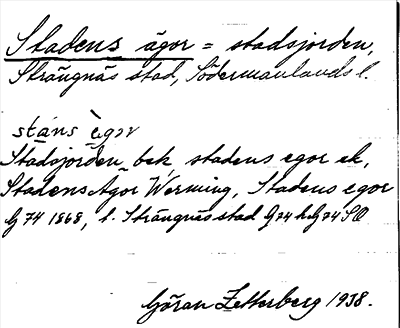 Stadens ägor = stadsjorden,
Strängnäs stad, Södermanlands l.
stáns ègor
Stadsjorden bek stadens egor ek,
Stadens Ägor Werming, Stadens egor
G 74 1868, l. Strängnäs stad
Göran Zetterberg 1938.